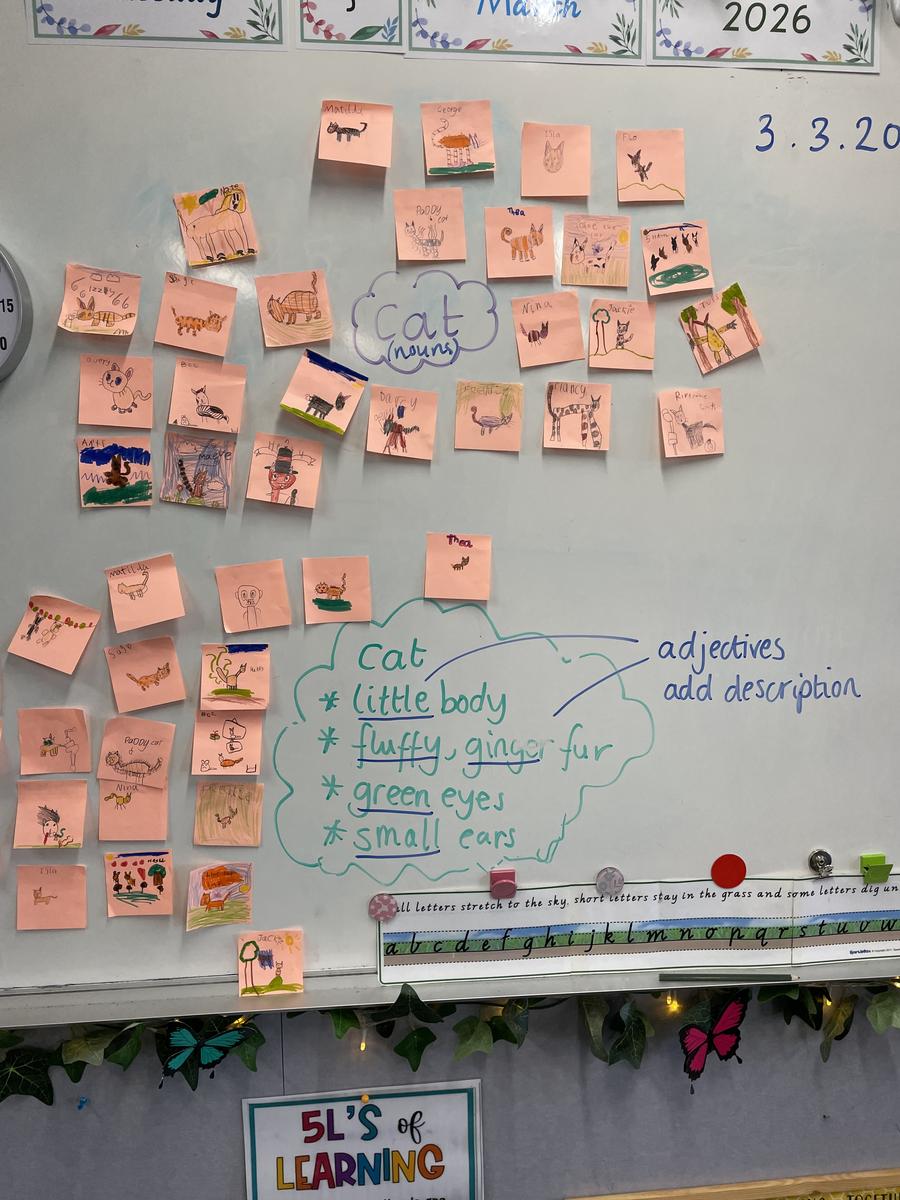 March
2026
3.3.20
Matilda
George
Isla
Flo
PaDDY
cat
Thea
Izzy
cat
(nouns)
Nina
Jackie
Darcy
Nancy
Thea
Matilda
cat
* little body
* fluffy, ginger fur
* green eyes
* small ears
adjectives
add description
PaDDY cat
Nina
Isla
Jackie
all letters stretch to the sky, short letters stay in the grass and some letters dig un
a b c d e f g h i j k l m n o p q r s t u v w
15
0
5L'S of
LEARNING